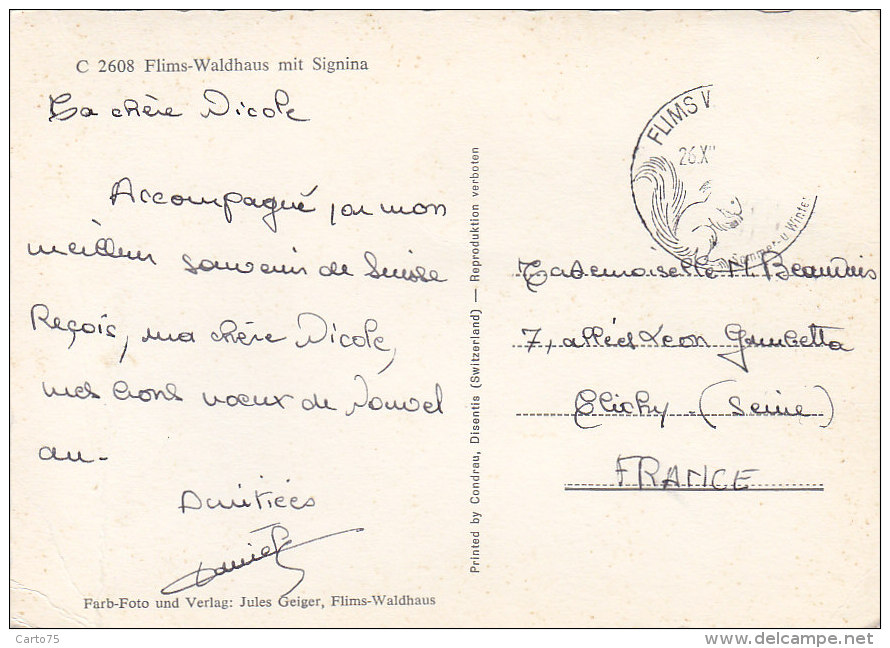 C 2608 Flims-Waldhaus mit Signina
Ma chère Nicole
Accompagné par mon
meilleur souvenir de Suisse
Reçois, ma chère Nicole,
mes bons vœux de Nouvel
an.
Amitiées
Printed by Condrau, Disentis (Switzerland) — Reproduktion verboten
FLIMS W
26.X
Sommer u. Winter
Mademoiselle N. Beauvais
7, allées Léon Gambetta
Clichy - (Seine)
FRANCE
Farb-Foto und Verlag: Jules Geiger, Flims-Waldhaus
Carto75
delcampe.net